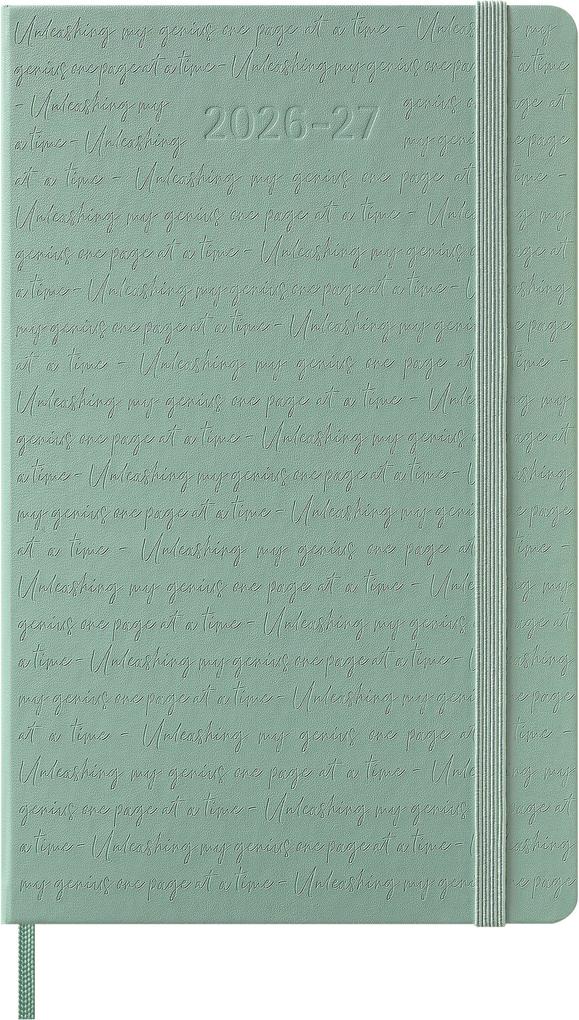 Unleashing my genius one page at a time - my
genius one page at a time - Unleashing my genius one a time
- Unleashing my genius at
2026-27
a time - Unleashing my page
at a time - Unleashing my genius one page at a time -
Unleashing my genius one page at a time - my
genius one page at a time - Unleashing my genius at
a time - Unleashing my genius one page at a time -
my genius one page at a time - Unleashing my page
at a time - Unleashing my genius one page at a time -
Unleashing my genius one page at a time - my
genius one page at a time - Unleashing my genius at
a time - Unleashing my genius one page at a time -
my genius one page at a time - Unleashing my page
at a time - Unleashing my genius one page at a time -
Unleashing my genius one page at a time - my
genius one page at a time - Unleashing my genius at
a time - Unleashing my genius one page at a time -
my genius one page at a time - Unleashing my page
at a time - Unleashing my genius one page at a time -
Unleashing my genius one page at a time - my
genius one page at a time - Unleashing my genius at
a time - Unleashing my genius one page at a time -
my genius one page at a time - Unleashing my page